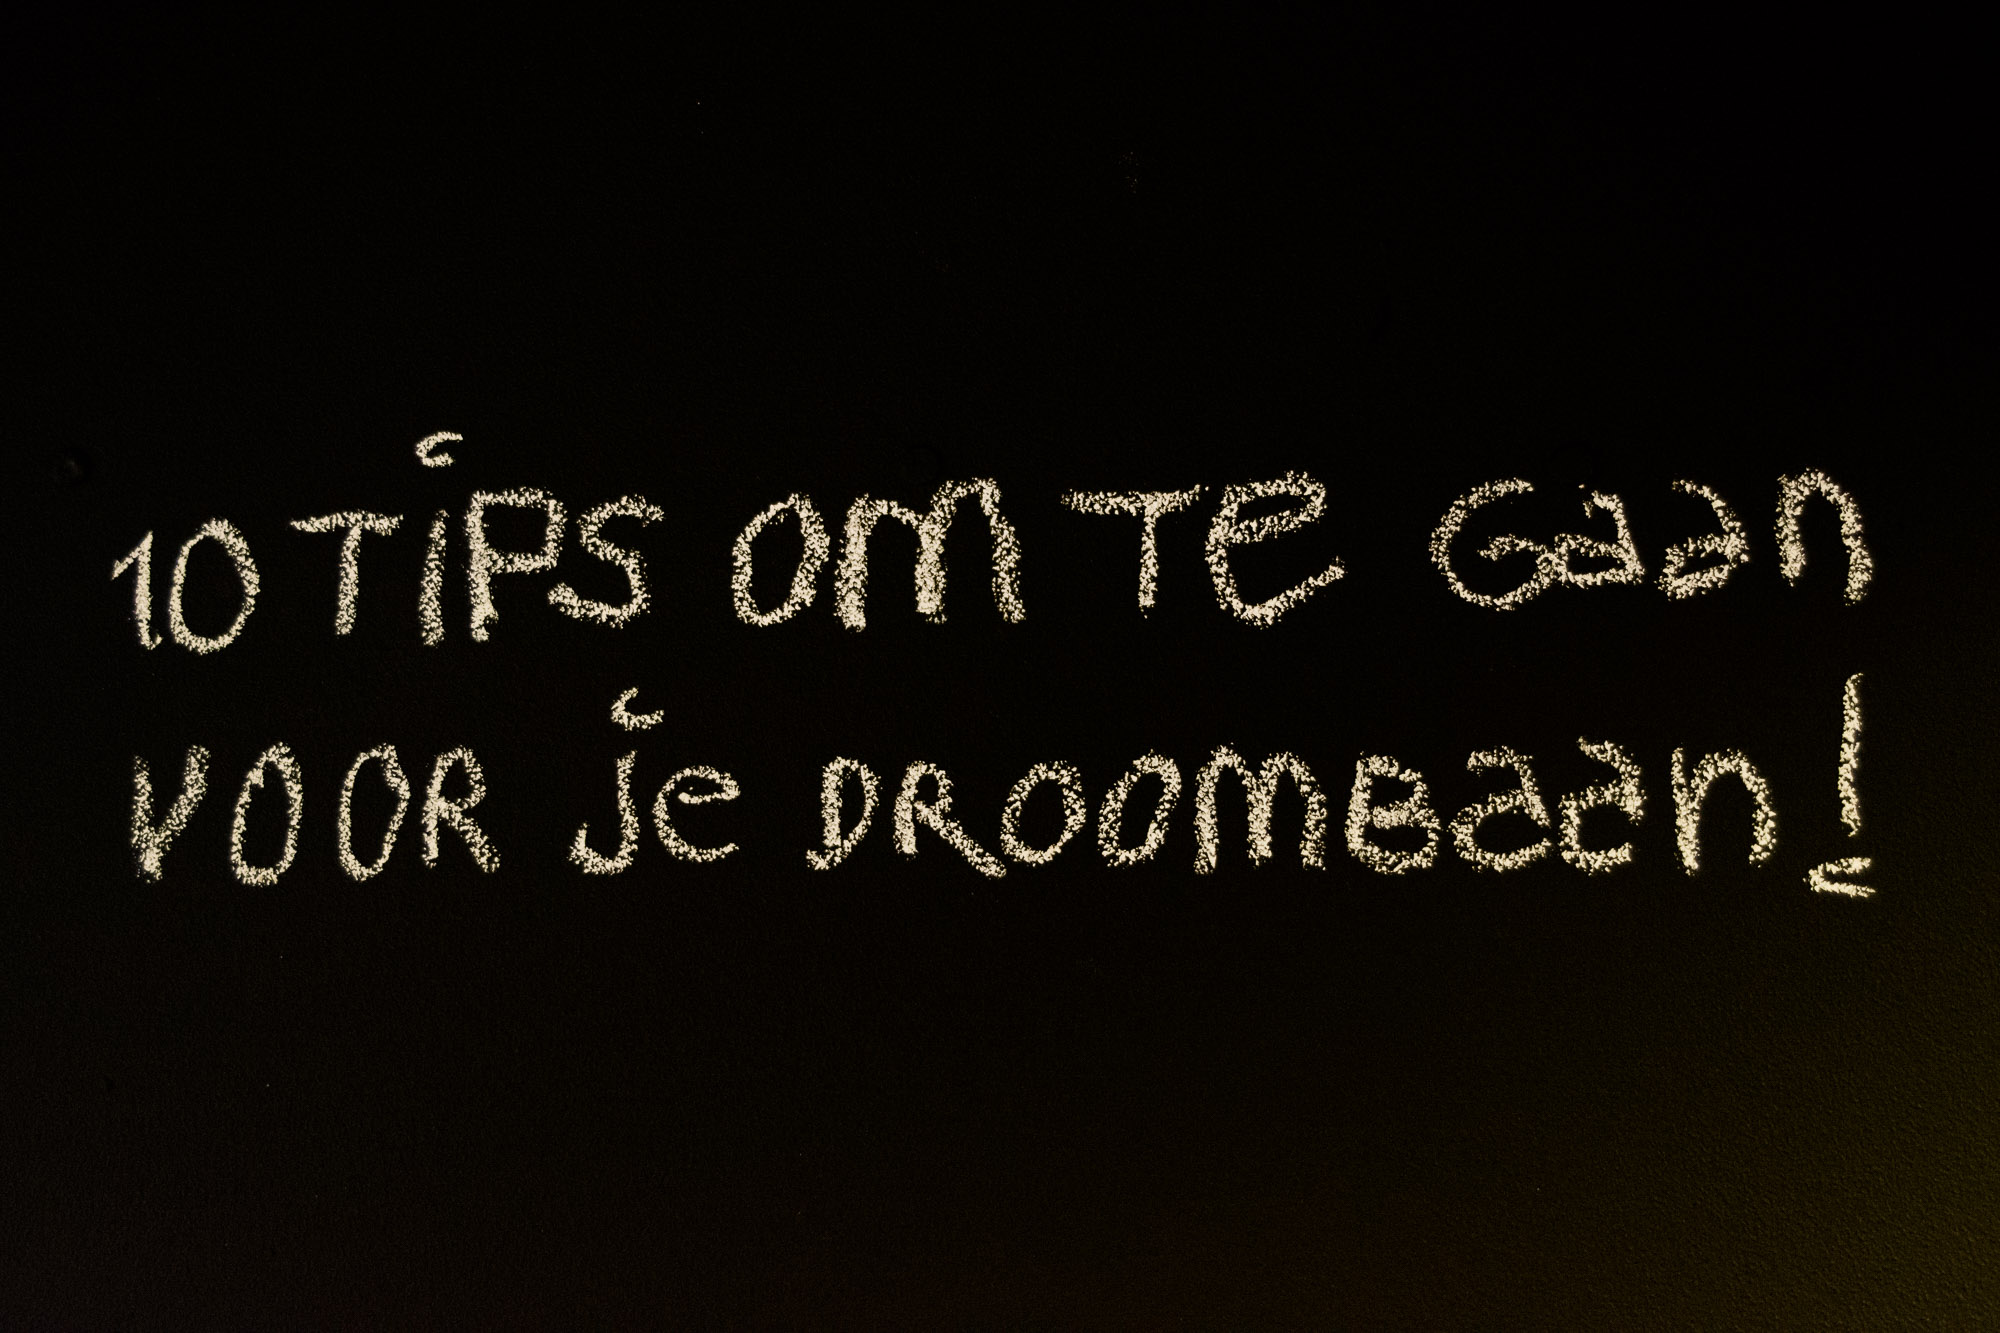 10 TiPS om Te Gaan
VOOR je DROOMBaan!